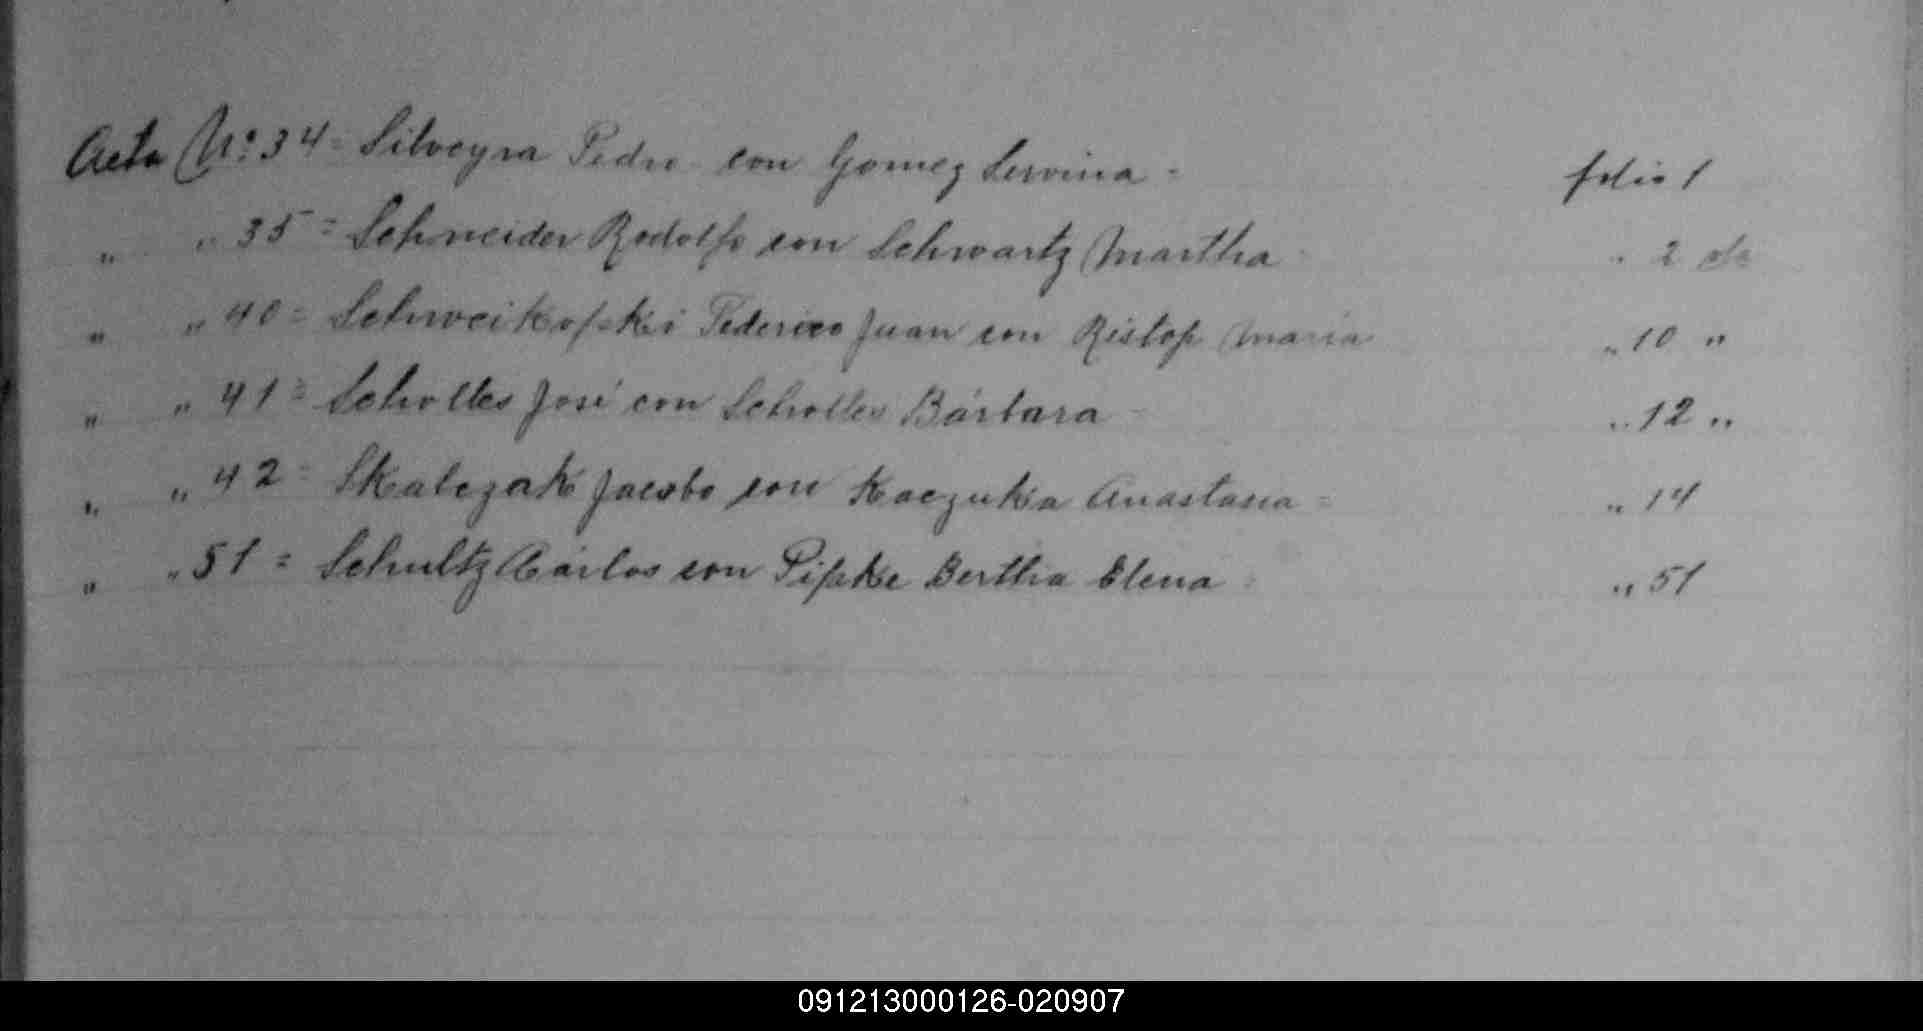 Acta Nº 34 = Silveyra Pedro con Gomez Servina = folio 1
" " 35 = Schneider Rodolfo con Schwartz Martha " 2
" " 40 = Schweikofski Federico Juan con Ristop Maria " 10 "
" " 41 = Scholles José con Scholles Bárbara " 12 "
" " 42 = Skalczak Jacobo con Kaczuka Anastasia = " 14
" " 51 = Schultz Cárlos con Pipke Bertha Elena = " 51
091213000126-020907